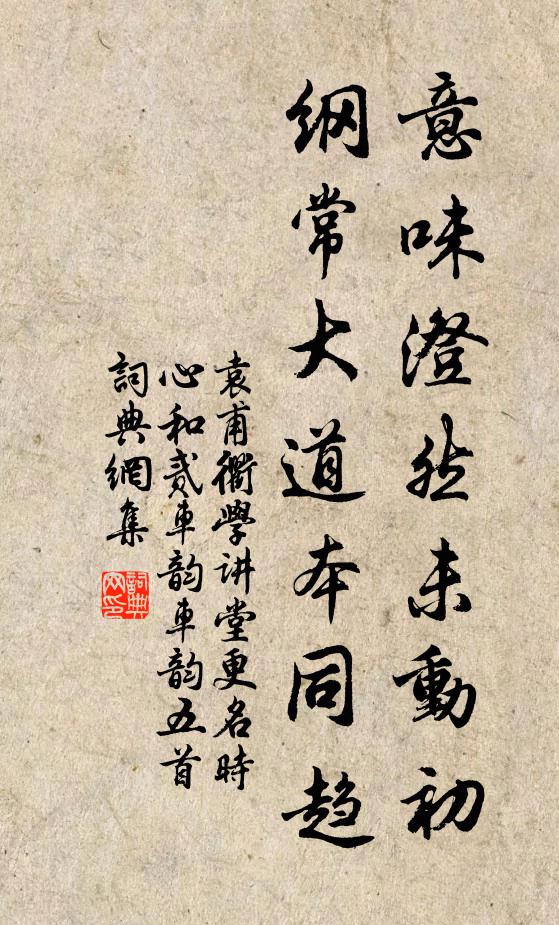 意味澄然未動初
綱常大道本同趋
袁甫衢學讲堂更名時
心和贰車韵車韵五首
詞典網集
詞典网印